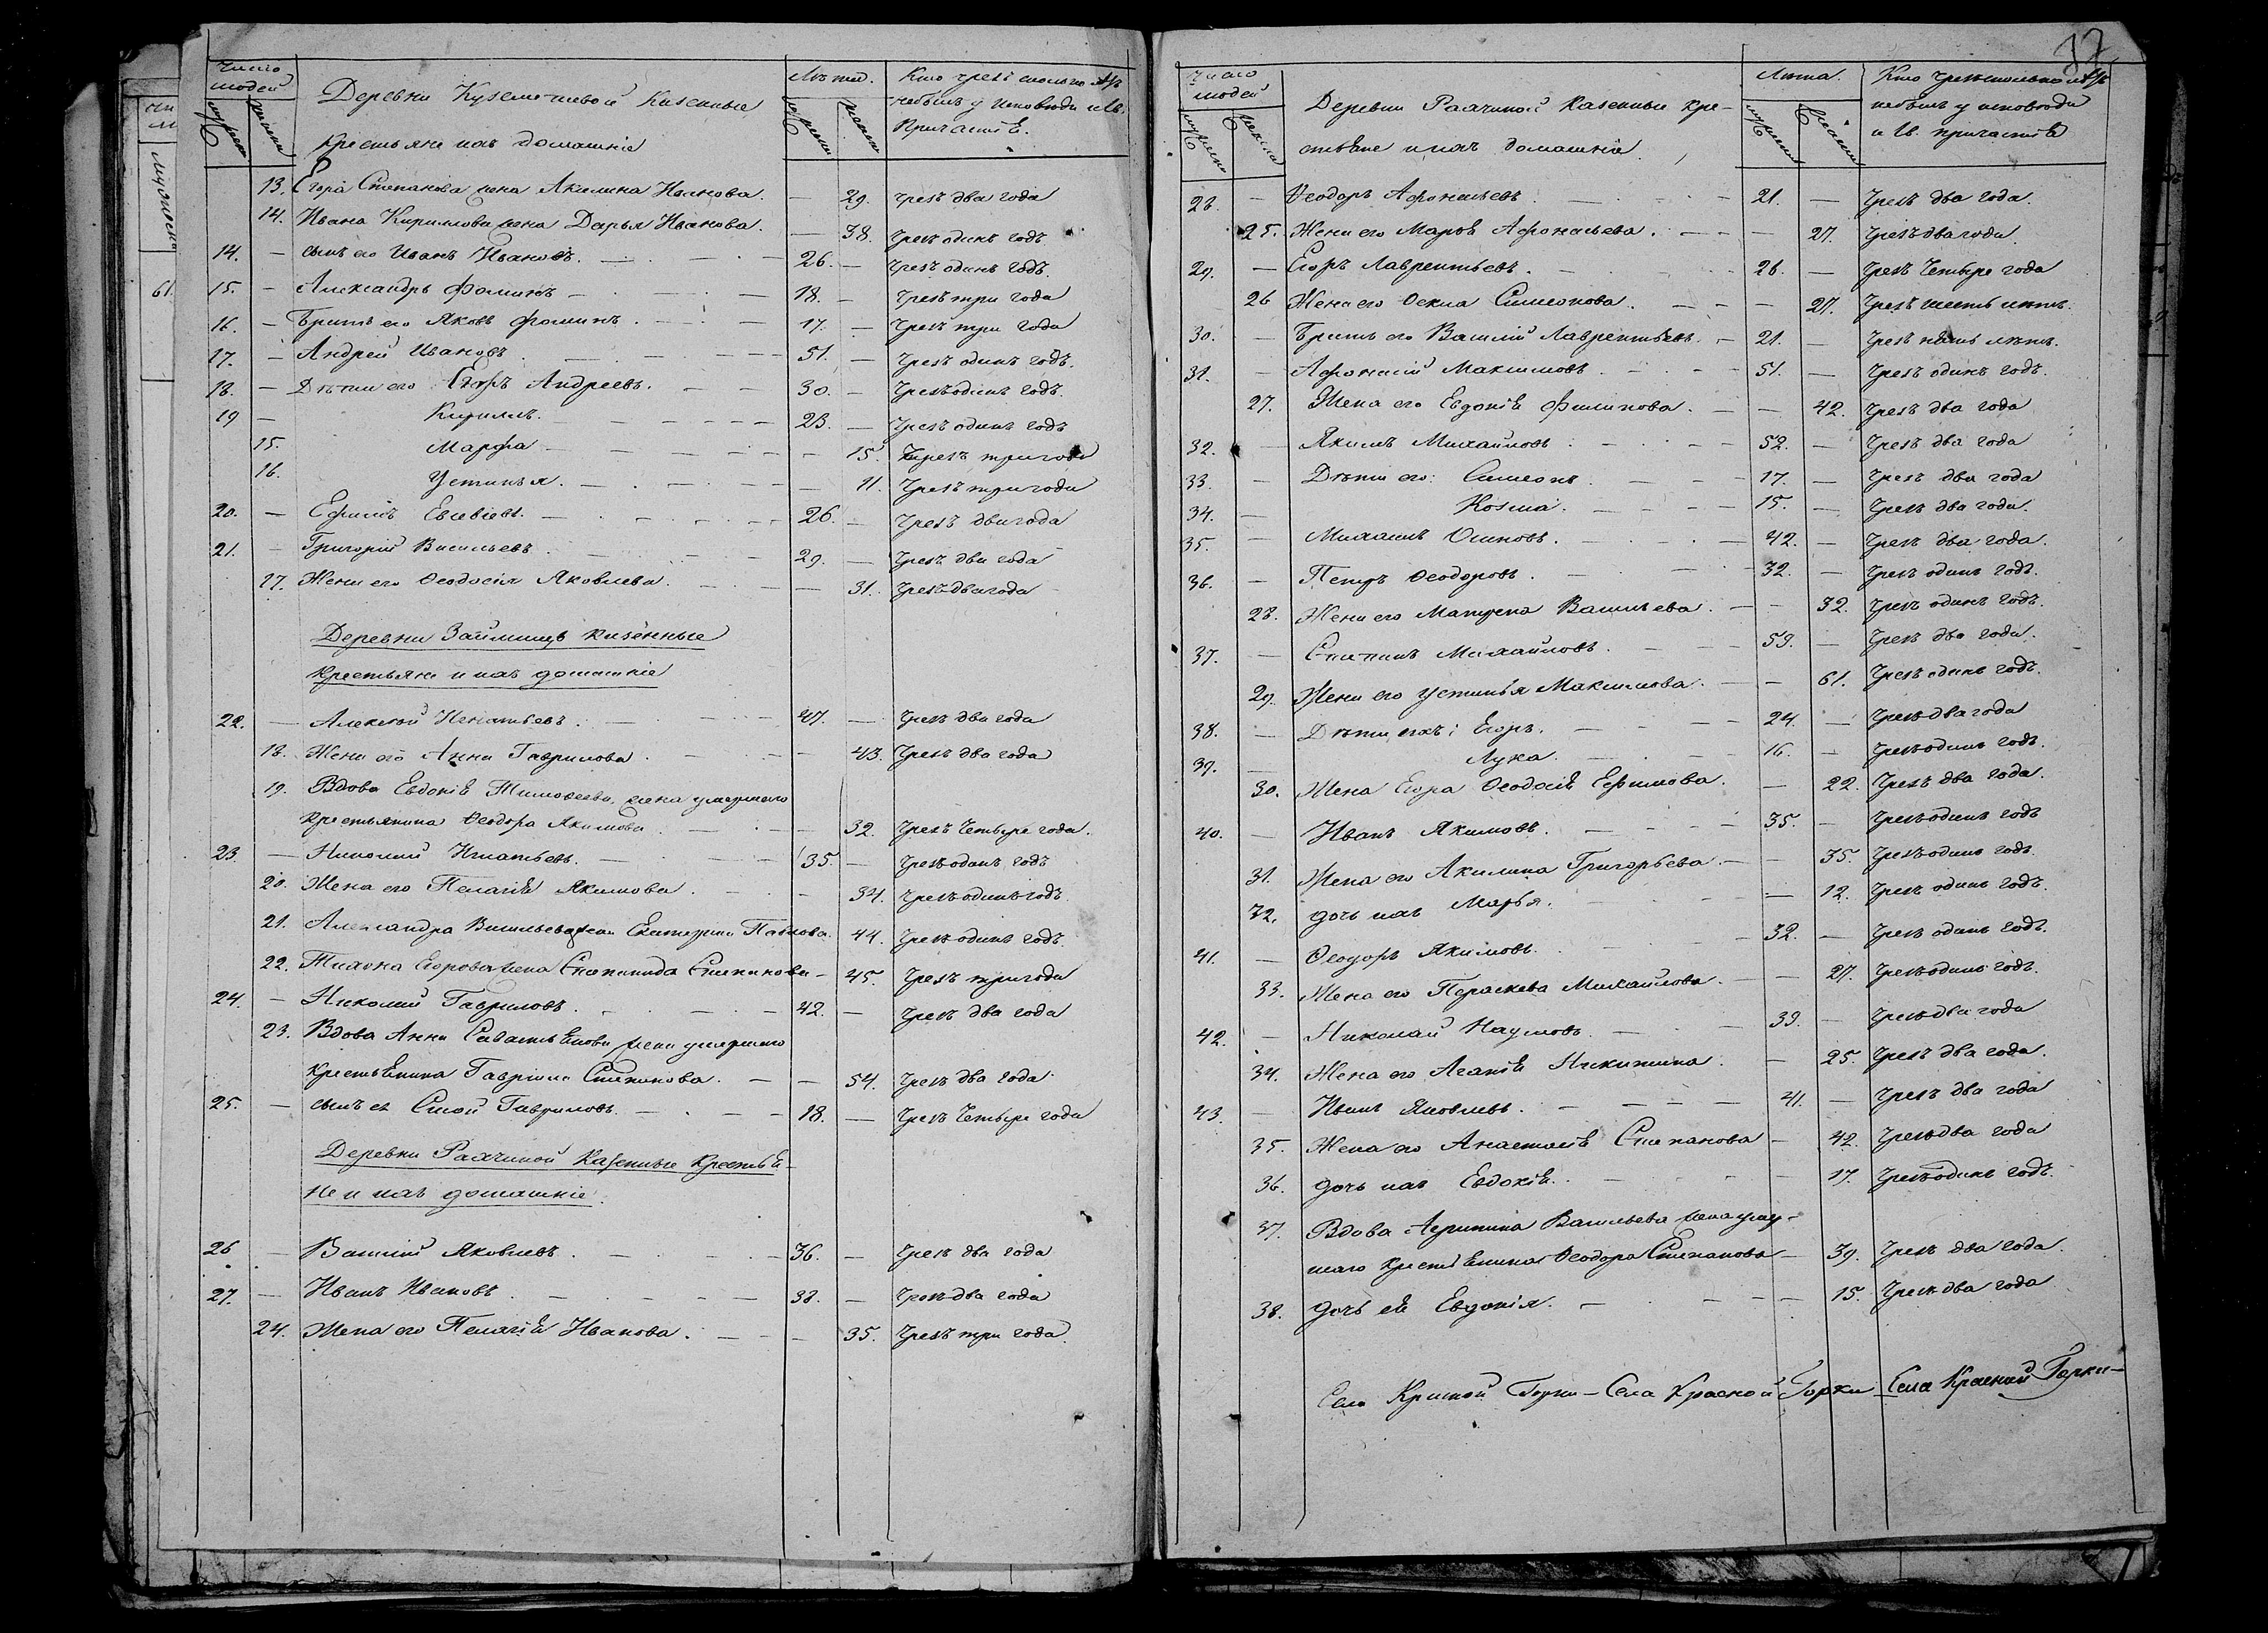 Число людей
Деревни Куземочевой Казенные
Крестьяне и ихъ домашніе
Лѣта.
Кто чрезъ сколько лѣтъ
небылъ у исповѣди и Св.
Причастія.
13. Егора Степанова жена Акилина Иванова. — 29. чрезъ два года
14. Ивана Кирилова жена Дарья Иванова. — 38. чрезъ одинъ годъ
14. — сынъ его Иванъ Ивановъ. 26. — чрезъ одинъ годъ.
15. — Александръ Фоминъ — 18. — чрезъ три года
16. — Братъ его Яковъ Фоминъ. 17. — чрезъ три года
17. — Андрей Ивановъ. 51. — чрезъ одинъ годъ.
18. — Дѣти его Егоръ Андреевъ. 30. — чрезъ одинъ годъ.
19 — Кирилъ. 23. — чрезъ одинъ годъ
15. Марфа — 15. чрезъ три года
16. Устинья. — 11. чрезъ три года
20. — Ефимъ Евсевіевъ. 26. — чрезъ два года
21. — Григорій Васильевъ. 29. — чрезъ два года
17. Жена его Ѳеодосія Яковлева. — 31. чрезъ два года
Деревни Займищъ казённые
крестьяне и ихъ домашніе
22. — Алексѣй Игнатьевъ. 47. — чрезъ два года
18. Жена его Анна Гаврилова. — 43. чрезъ два года
19. Вдова Евдокія Тимоѳеева, жена умершаго
крестьянина Ѳеодора Якимова — 32. чрезъ четыре года.
23. — Николай Игнатьевъ. 35. — чрезъ одинъ годъ
20. Жена его Пелагія Якимова. — 34. чрезъ одинъ годъ.
21. Александра Васильева жена Екатерина Павлова. 44. чрезъ одинъ годъ.
22. Тихона Егорова жена Степанида Степанова — 45. чрезъ три года
24. — Николай Гавриловъ. 42. — чрезъ два года
23. Вдова Анна Савастьянова жена умершаго
крестьянина Гаврила Степанова. — 54. чрезъ два года
25. — сынъ ея Сысой Гавриловъ. 18. — чрезъ четыре года
Деревни Расчиной Казенные крестья-
не и ихъ домашніе.
26 — Василій Яковлевъ. 36. — чрезъ два года
27. — Иванъ Ивановъ. 38. — чрезъ два года
24. Жена его Пелагія Иванова. — 35. чрезъ три года.
37
Число людей
Деревни Расчиной казенные кре-
стьяне и ихъ домашніе.
Лѣта.
Кто чрезъ сколько лѣтъ
небылъ у исповѣди
и Св. причастія
28. — Ѳеодоръ Афонасьевъ. 21. — чрезъ два года.
25. Жена его Марѳа Афонасьева. — 27. чрезъ два года.
29. — Егоръ Лаврентьевъ. 26. — чрезъ четыре года
26 Жена его Ѳекла Симеонова. — 27. чрезъ шесть лѣтъ.
30. — Братъ его Василій Лаврентьевъ. 21. — чрезъ пять лѣтъ.
31. — Афонасій Максимовъ. 51. — чрезъ одинъ годъ.
27. Жена его Евдокія Филипова. — 42. чрезъ два года
32. — Якимъ Михайловъ. 52. — чрезъ два года
33. — Дѣти его: Симеонъ. 17. — чрезъ два года
34. — Козма. 15. — чрезъ два года.
35. — Михаилъ Осиповъ. 42. — чрезъ два года.
36. — Петръ Ѳеодоровъ. 32. — чрезъ одинъ годъ.
28. Жена его Матрена Васильева. — 32. чрезъ одинъ годъ.
37. — Степанъ Михайловъ. 59. — чрезъ два года.
29. Жена его Устинья Максимова. — 61. чрезъ одинъ годъ.
38. — Дѣти ихъ: Егоръ. 24. — чрезъ два года
39. — Лука. 16. — чрезъ одинъ годъ.
30. Жена Егора Ѳеодосія Ефимова. — 22. чрезъ два года.
40. — Иванъ Якимовъ. 35. — чрезъ одинъ годъ
31. Жена его Акилина Григорьева. — 35. чрезъ одинъ годъ.
32. дочь ихъ Марья. — 12. чрезъ одинъ годъ.
41. — Ѳеодоръ Якимовъ. 32. — чрезъ одинъ годъ.
33. Жена его Параскева Михайлова. — 27. чрезъ одинъ годъ.
42. — Николай Наумовъ. 39. — чрезъ два года
34. Жена его Агапія Никитина. — 25. чрезъ два года.
43. — Иванъ Яковлевъ. 41. — чрезъ два года
35. Жена его Анастасія Степанова — 42. чрезъ два года
36. дочь ихъ Евдокія. — 17. чрезъ одинъ годъ.
37. Вдова Агрипина Васильева жена умер-
шаго крестьянина Ѳеодора Степанова — 39. чрезъ два года.
38. дочь ея Евдокія. — 15. чрезъ два года
Села Красной Горки — Села Красной Горки Села Красной Горки —